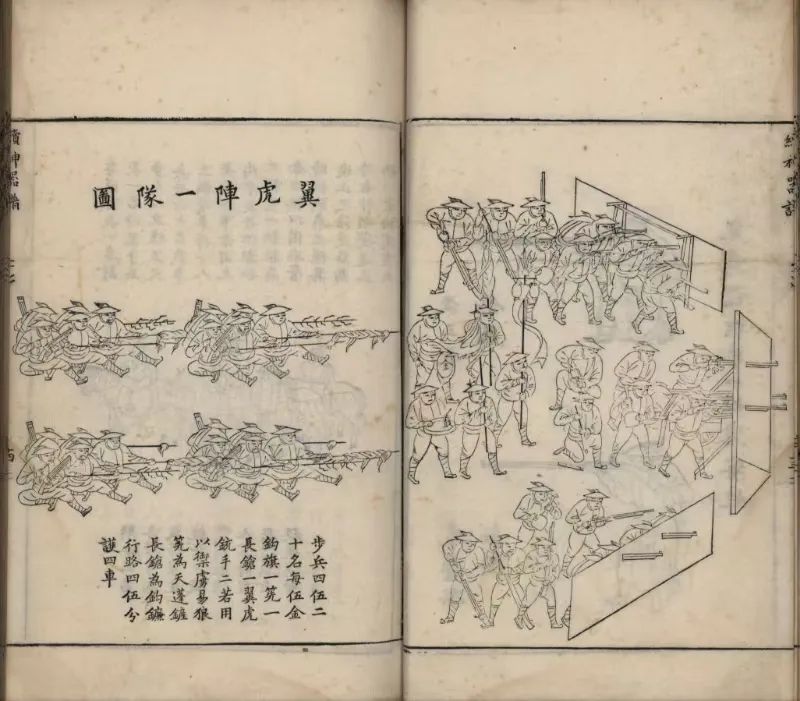 翼虎陣一隊圖
步兵四伍二
十名每伍金
鈎旗一筅一
長鎗一翼虎
銃手二若用
以禦虜易狼
筅為天蓬鏟
長鎗為鈎鐮
行路四伍分
護四車
續神器譜